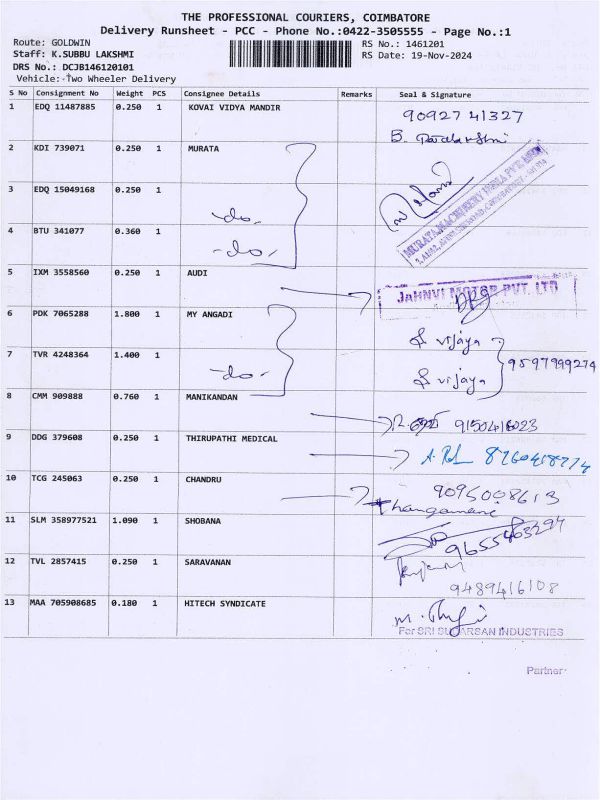 THE PROFESSIONAL COURIERS, COIMBATORE
Delivery Runsheet - PCC - Phone No.:0422-3505555 - Page No.:1
Route: GOLDWIN
RS No.: 1461201
Staff: K.SUBBU LAKSHMI
RS Date: 19-Nov-2024
DRS No.: DCJB146120101
Vehicle: Two Wheeler Delivery
S No Consignment No Weight PCS Consignee Details Remarks Seal & Signature
1 EDQ 11487885 0.250 1 KOVAI VIDYA MANDIR 90927 41327
B.
2 KDI 739071 0.250 1 MURATA
3 EDQ 15049168 0.250 1 -do-
MURATA MACHINERY INDIA PVT.
4 BTU 341077 0.360 1 -do-
5 IXM 3558560 0.250 1 AUDI
JAHNVI MOTOR PVT. LTD
6 PDK 7065288 1.800 1 MY ANGADI S vijaya
7 TVR 4248364 1.400 1 -do- S vijaya 9597999274
8 CMM 909888 0.760 1 MANIKANDAN 9150416023
9 DDG 379608 0.250 1 THIRUPATHI MEDICAL 8760418774
10 TCG 245063 0.250 1 CHANDRU 9095008613
Thangamani
11 SLM 358977521 1.090 1 SHOBANA 9655463294
12 TVL 2857415 0.250 1 SARAVANAN 9489416108
13 MAA 705908685 0.180 1 HITECH SYNDICATE
For SRI SUDARSAN INDUSTRIES
Partner